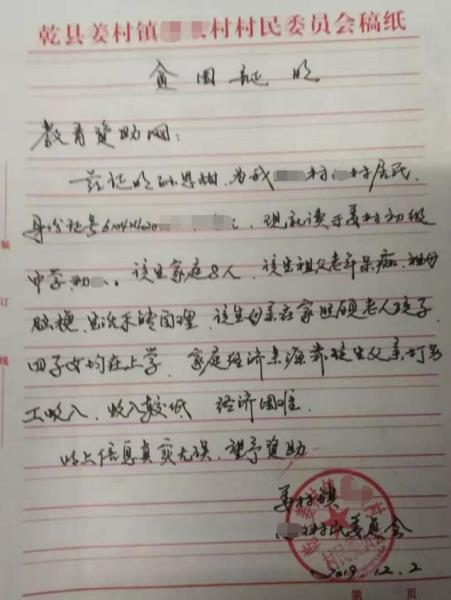 乾县姜村镇 村村民委员会稿纸
贫困证明
教育资助网：
兹证明 思 ，为我 村 村居民，
身份证号610424200 ，现就读于姜村初级
中学初 。该生家庭8人，该生祖父老年呆痴，祖母
脑梗，生活不能自理，该生母亲在家照顾老人孩子，
四子女均在上学，家庭经济来源靠该生父亲打
工收入，收入较低 经济困难.
以上信息真实无误，望予资助
姜村镇
村民委员会
2019.12.2
装
订
线
第 页